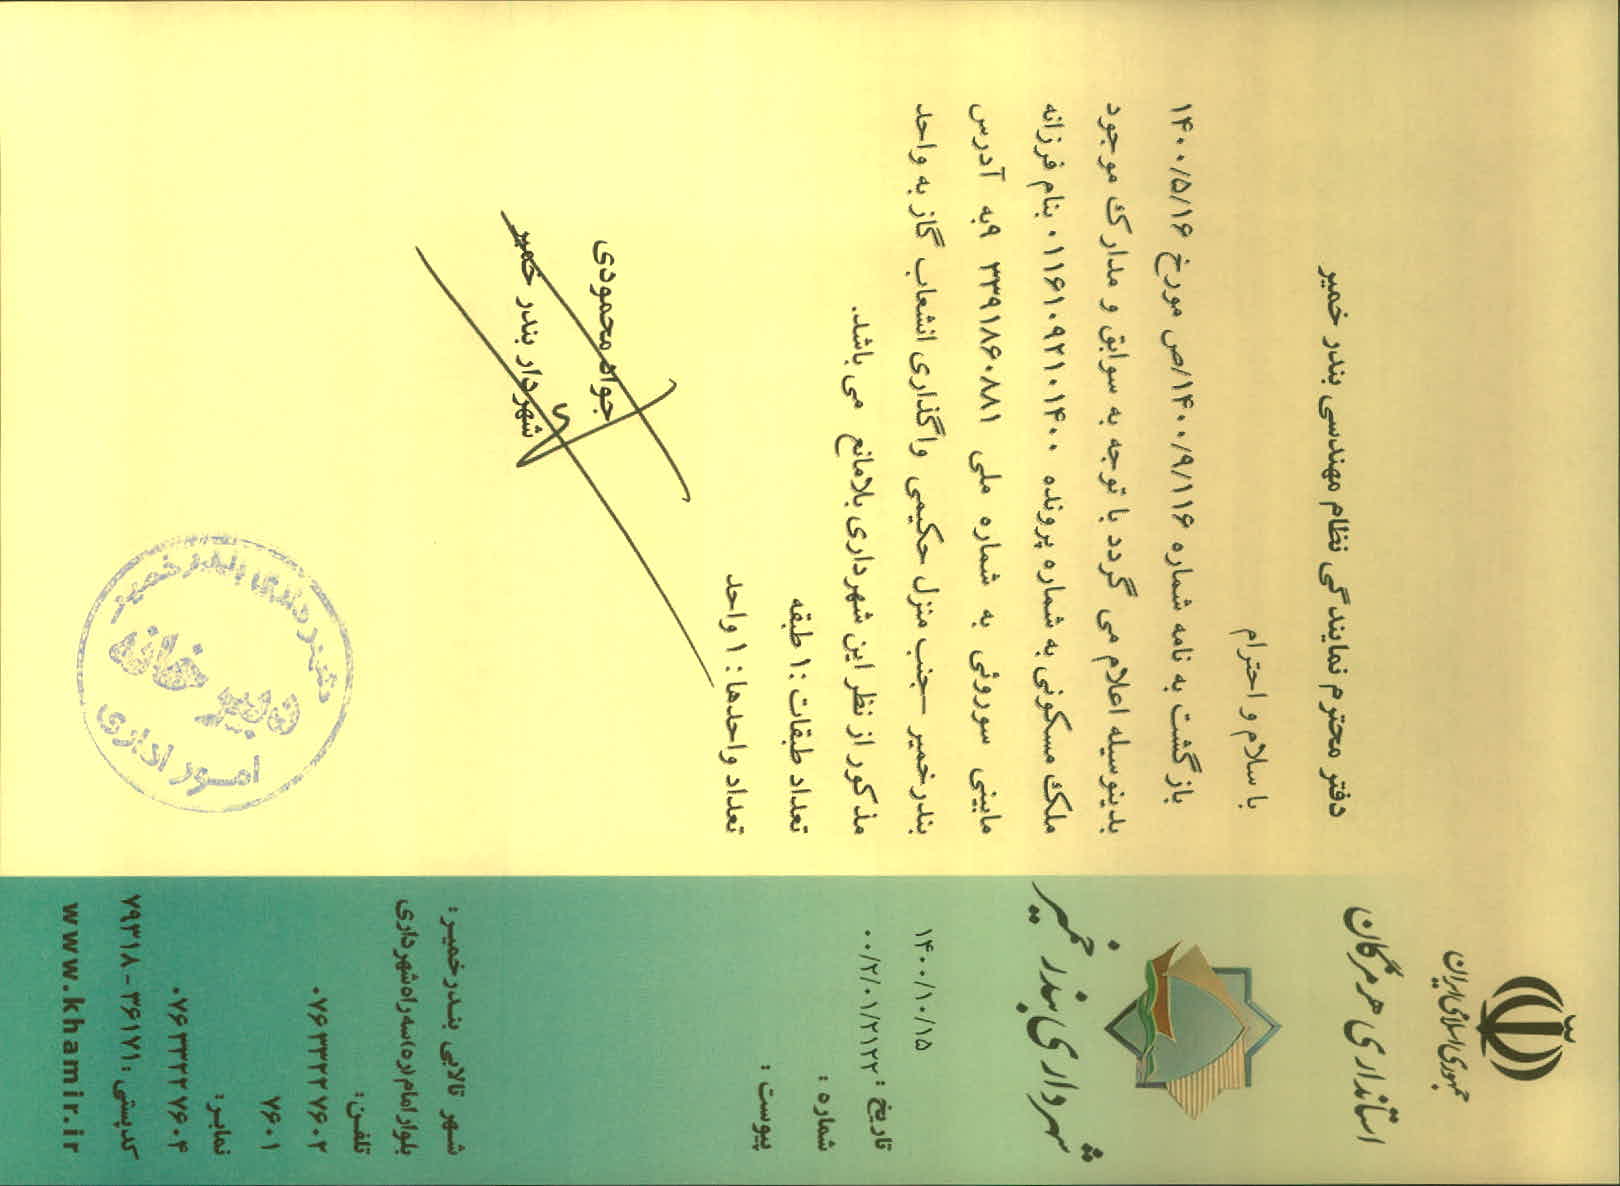 جمهوری اسلامی ایران
استانداری هرمزگان
شهرداری بندر خمیر
۱۴۰۰/۱۰/۱۵
تاریخ : ۰۰/۲/۰۱/۲۱۲۲
شماره :
پیوست :
دفتر محترم نمایندگی نظام مهندسی بندر خمیر
با سلام و احترام
بازگشت به نامه شماره ۱۴۰۰/۹/۱۱۶/ص مورخ ۱۴۰۰/۵/۱۶
بدینوسیله اعلام می گردد با توجه به سوابق و مدارک موجود
ملک مسکونی به شماره پرونده ۰۱۱۶۱۰۹۲۱۰۱۴۰۰ بنام فرزانه
مابینی سوروئی به شماره ملی ۳۳۹۱۸۶۰۸۸۱ ۹به آدرس
بندرخمیر -جنب منزل حکیمی واگذاری انشعاب گاز به واحد
مذکور از نظر این شهرداری بلامانع می باشد.
تعداد طبقات :۱ طبقه
تعداد واحدها : ۱ واحد
جواد محمودی
شهردار بندر خمیر
شهرداری بندر خمیر
دبیرخانه
امور اداری
شهر تالابی بندرخمیر:
بلوار امام(ره)سه راه شهرداری
تلفن:
۰۷۶۳۳۲۲۷۶۰۲
۷۶۰۱
نمابر:
۰۷۶۳۳۲۲۷۶۰۴
کدپستی: ۳۶۱۷۱-۷۹۳۱۸
www.khamir.ir